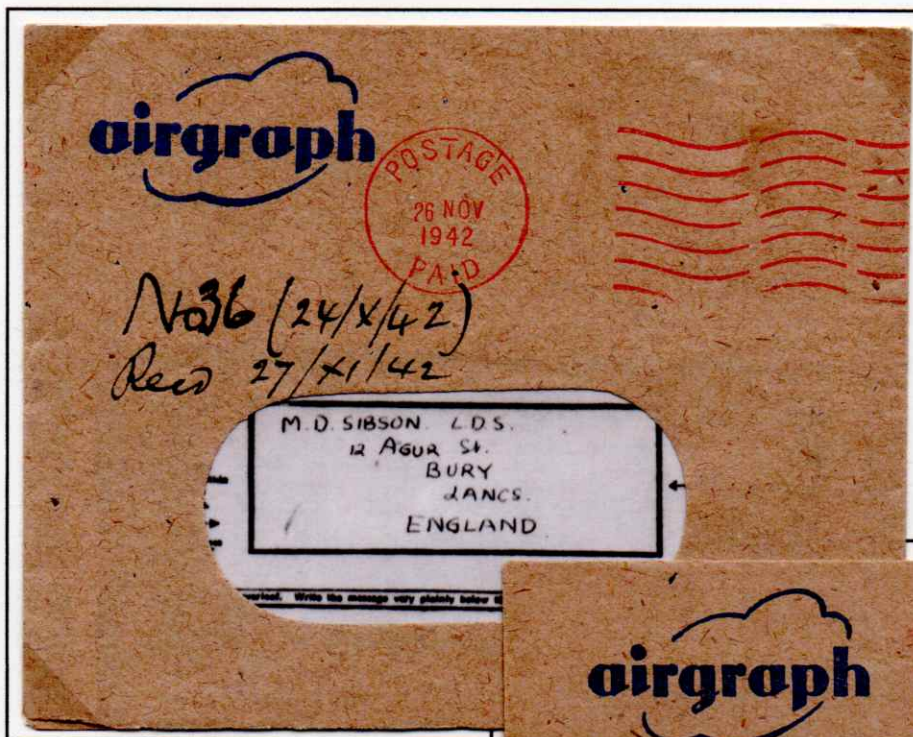 airgraph
POSTAGE
26 NOV
1942
PAID
No 36 (24/X/42)
Recd 27/XI/42
M.D. SIBSON L.D.S.
12 AGUR St.
BURY
LANCS.
ENGLAND
Write the message very plainly below
airgraph